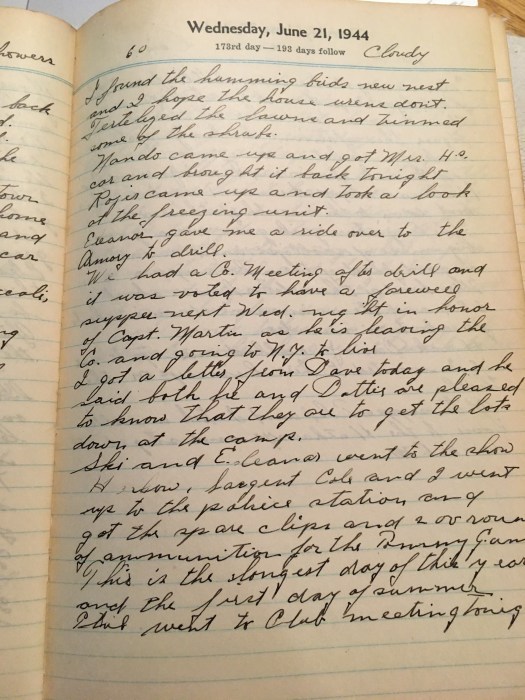 Wednesday, June 21, 1944
60
173rd day — 193 days follow
Cloudy
I found the humming birds new nest
and I hope the house wrens don't.
Ferteliged the lawns and trimmed
some of the shrubs.
Nando came up and got Mrs. Ho.
car and brought it back tonight
came up and took a look
at the freezing unit.
Eleanor gave me a ride over to the
Armory to drill.
We had a Co. Meeting after drill and
it was voted to have a farewell
supper next Wed. night in honor
of Capt. Martin as he is leaving the
Co. and going to N.Y. to live
I got a letter from Dave today and he
said both he and Dottie are pleased
to know that they are to get the lots
down at the camp.
Ski and Eleanor went to the show
Sargent Cole and I went
up to the police station and
got the spare clips and 200 roun
of ammunition for the Tommy Gun
This is the longest day of this year
and the first day of summer
Phil went to Club meeting tonig
howers
back
d.
he
Town
home
and
car
ng